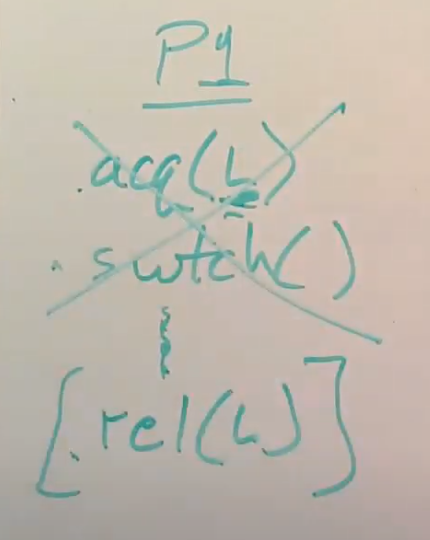 P1
.acq(L)
.swtch()
[.rel(L)]